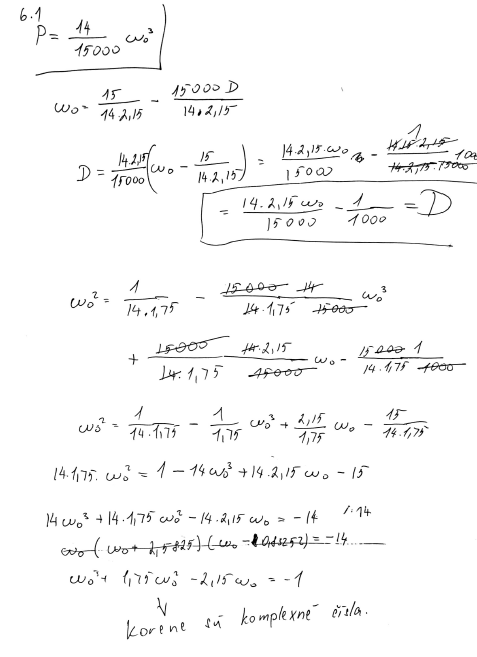 6.1
P = 14/15000 ω₀³
ω₀ = 15/14.2,15 − 15000 D/14.2,15
D = 14.2,15/15000 (ω₀ − 15/14.2,15) = 14.2,15.ω₀/15000 − 14.15 2,15/14.2,15.15000 1 1000
= 14.2,15 ω₀/15000 − 1/1000 = D
ω₀² = 1/14.1,75 − 15000 14/14.1,75 15000 ω₀³
+ 15000/14.1,75 14.2,15/15000 ω₀ − 15000 1/14.1,75 1000
ω₀² = 1/14.1,75 − 1/1,75 ω₀³ + 2,15/1,75 ω₀ − 15/14.1,75
14.1,75. ω₀² = 1 − 14ω₀³ + 14.2,15 ω₀ − 15
14ω₀³ + 14.1,75 ω₀² − 14.2,15 ω₀ = −14 /:14
ω₀ ( ω₀ + 2,5825)(ω₀ = −14
ω₀³ + 1,75ω₀² − 2,15ω₀ = −1
Korene sú komplexné čísla.